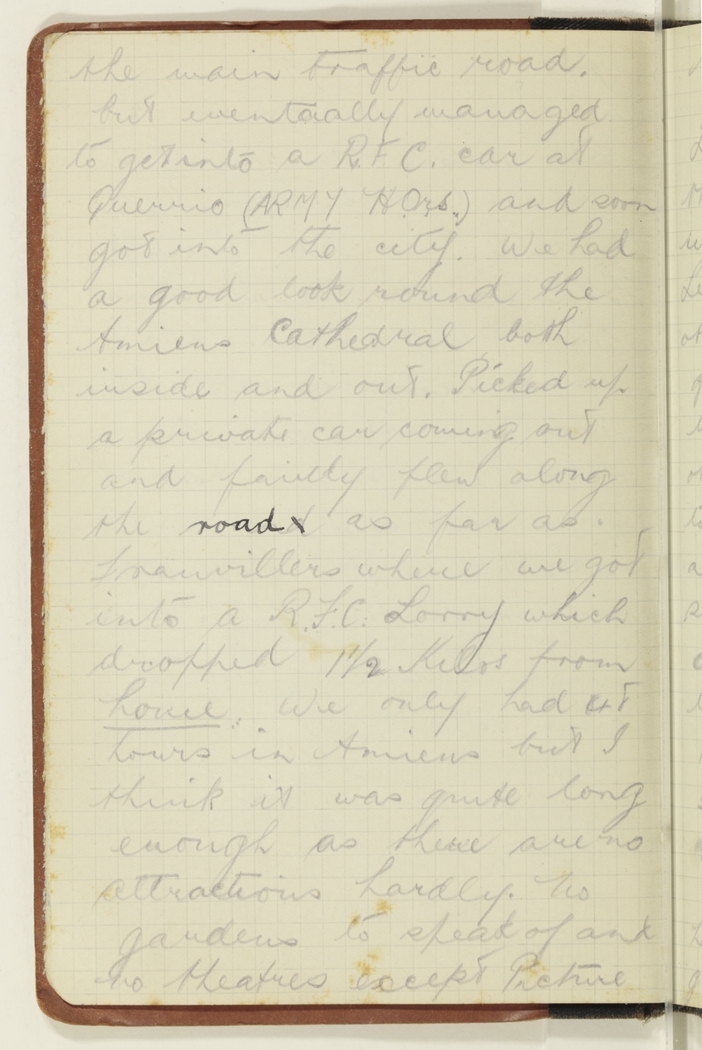 the main traffic road.
but eventually managed
to get into a R.F.C. car at
Querrio (ARMY HQrs.) and soon
got into the city. We had
a good look round the
Amiens Cathedral both
inside and out. Picked up
a private car coming out
and fairly flew along
the road x as far as.
Franvillers where we got
into a R.F.C. Lorry which
dropped 1 1/2 Kilos from
home. We only had
hours in Amiens but I
think it was quite long
enough as there are no
attractions hardly. No
gardens to speak of and
no theatres except Picture